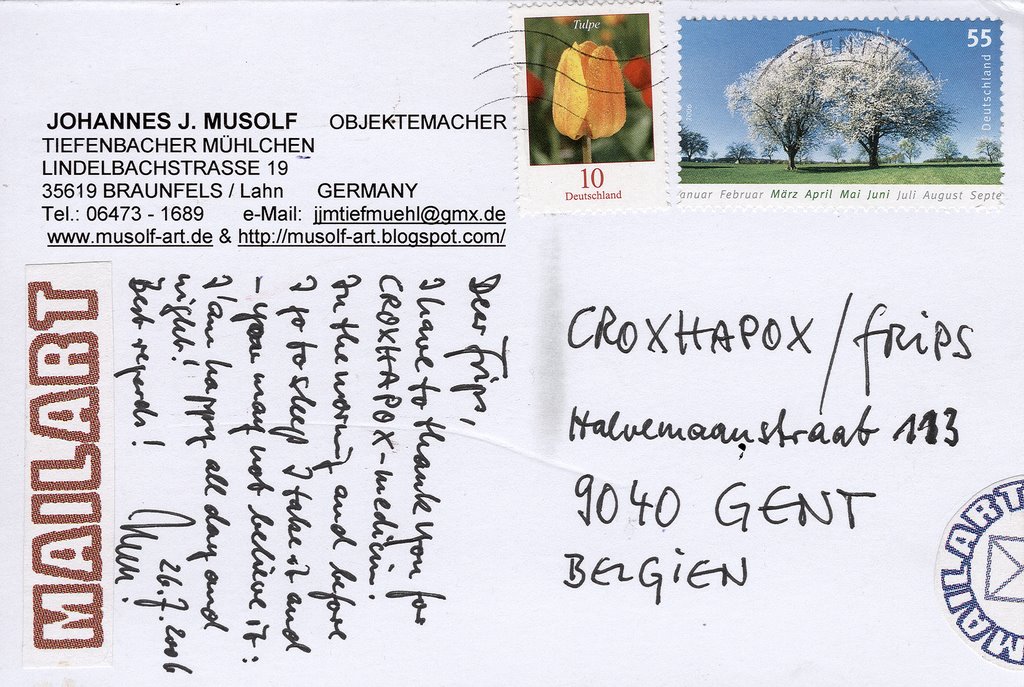 JOHANNES J. MUSOLF OBJEKTEMACHER
TIEFENBACHER MÜHLCHEN
LINDELBACHSTRASSE 19
35619 BRAUNFELS / Lahn GERMANY
Tel.: 06473 - 1689 e-Mail: jjmtiefmuehl@gmx.de
www.musolf-art.de & http://musolf-art.blogspot.com/
Tulpe
10
Deutschland
55
Deutschland
2006
anuar Februar März April Mai Juni Juli August Septe
MAILART
Dear Frips,
I have to thank you for
CROXHAPOX-medicin!
In the morning and before
I go to sleep I take it and
- you may not belive it:
I am happy all day and
night!
Best regards!
26.7.2006
CROXHAPOX / FRIPS
Halvemaanstraat 113
9040 GENT
BELGIEN
MAILART